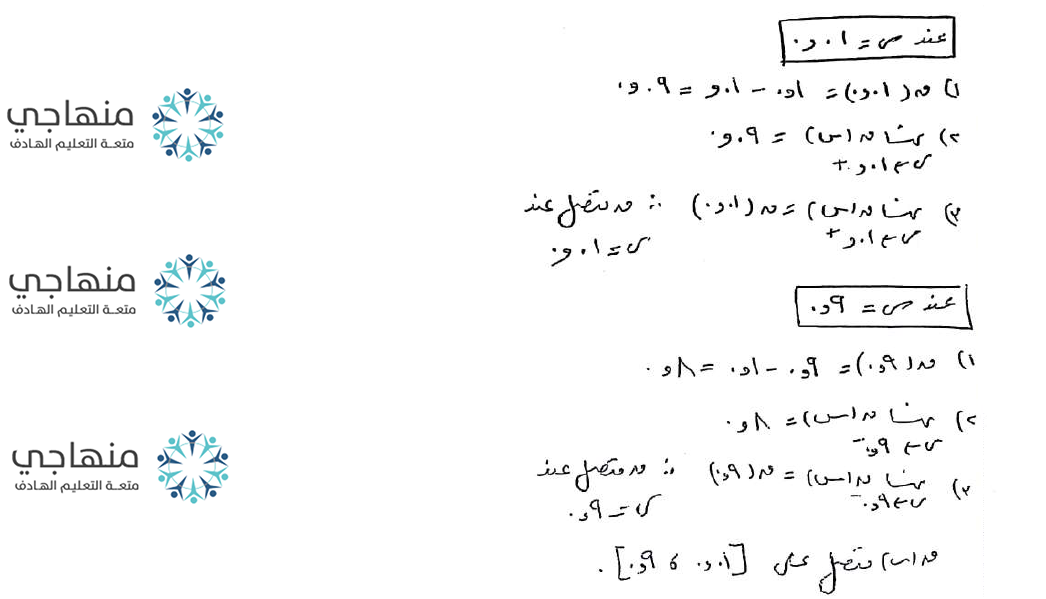 عند س = ٠,٠١
١) ق(٠,٠١) = ٠,١ - ٠,٠١ = ٠,٠٩
٢) نهـا ق(س) = ٠,٠٩
س ← ٠,٠١+
٣) نهـا ق(س) = ق(٠,٠١) ∴ ق متصل عند
س ← ٠,٠١+
س = ٠,٠١
عند س = ٠,٩
١) ق(٠,٩) = ٠,٩ - ٠,١ = ٠,٨
٢) نهـا ق(س) = ٠,٨
س ← ٠,٩-
٣) نهـا ق(س) = ق(٠,٩) ∴ ق متصل عند
س ← ٠,٩-
س = ٠,٩
ق(س) متصل على [٠,٠١ ، ٠,٩].
منهاجي
متعة التعليم الهادف
منهاجي
متعة التعليم الهادف
منهاجي
متعة التعليم الهادف